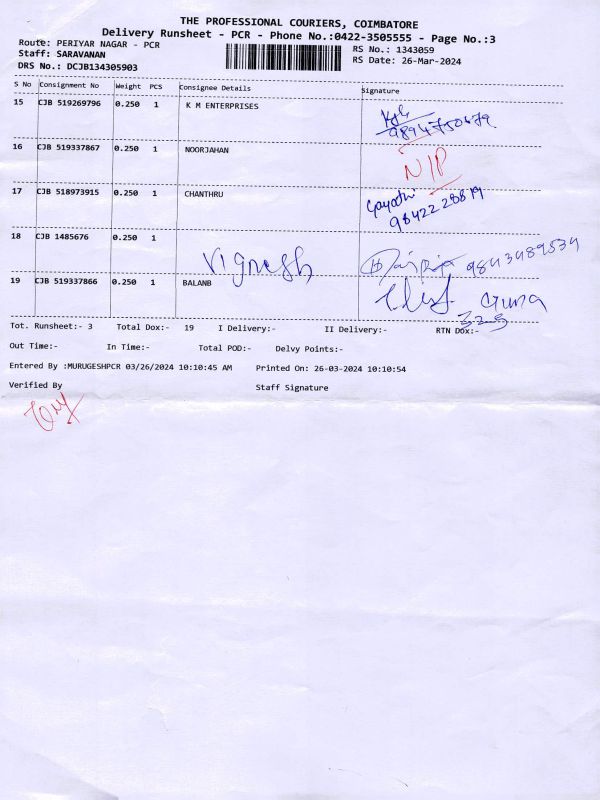 THE PROFESSIONAL COURIERS, COIMBATORE
Delivery Runsheet - PCR - Phone No.:0422-3505555 - Page No.:3
Route: PERIYAR NAGAR - PCR RS No.: 1343059
Staff: SARAVANAN RS Date: 26-Mar-2024
DRS No.: DCJB134305903
S No Consignment No Weight PCS Consignee Details Signature
15 CJB 519269796 0.250 1 K M ENTERPRISES
9894750479
16 CJB 519337867 0.250 1 NOORJAHAN N/P
17 CJB 518973915 0.250 1 CHANTHRU Gayathri
98422 28819
18 CJB 1485676 0.250 1
Vignesh 9843489534
19 CJB 519337866 0.250 1 BALANB Guna
Tot. Runsheet:- 3 Total Dox:- 19 I Delivery:- II Delivery:- RTN Dox:-
Out Time:- In Time:- Total POD:- Delvy Points:-
Entered By :MURUGESHPCR 03/26/2024 10:10:45 AM Printed On: 26-03-2024 10:10:54
Verified By Staff Signature